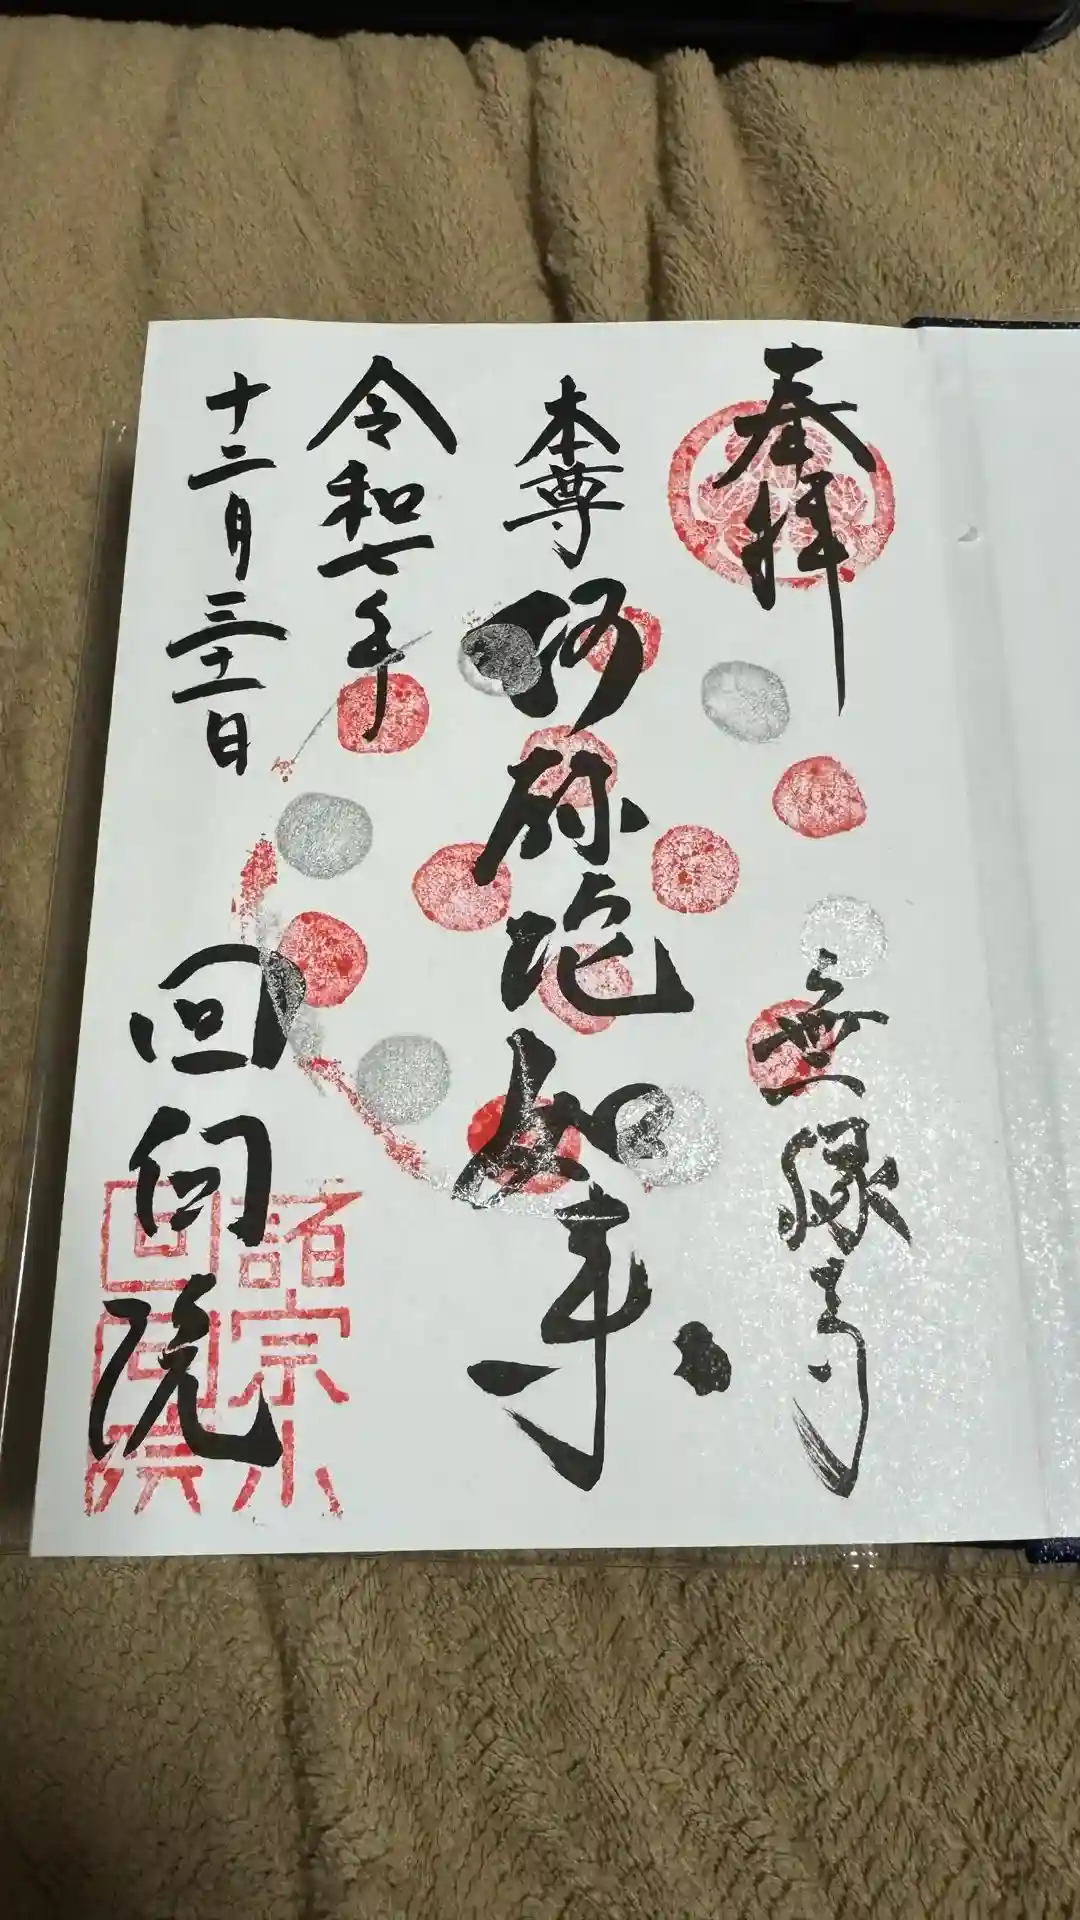 奉拝
無縁寺
本尊 阿弥陀如来
令和七年
十二月三十一日
回向院
諸宗山
回向院